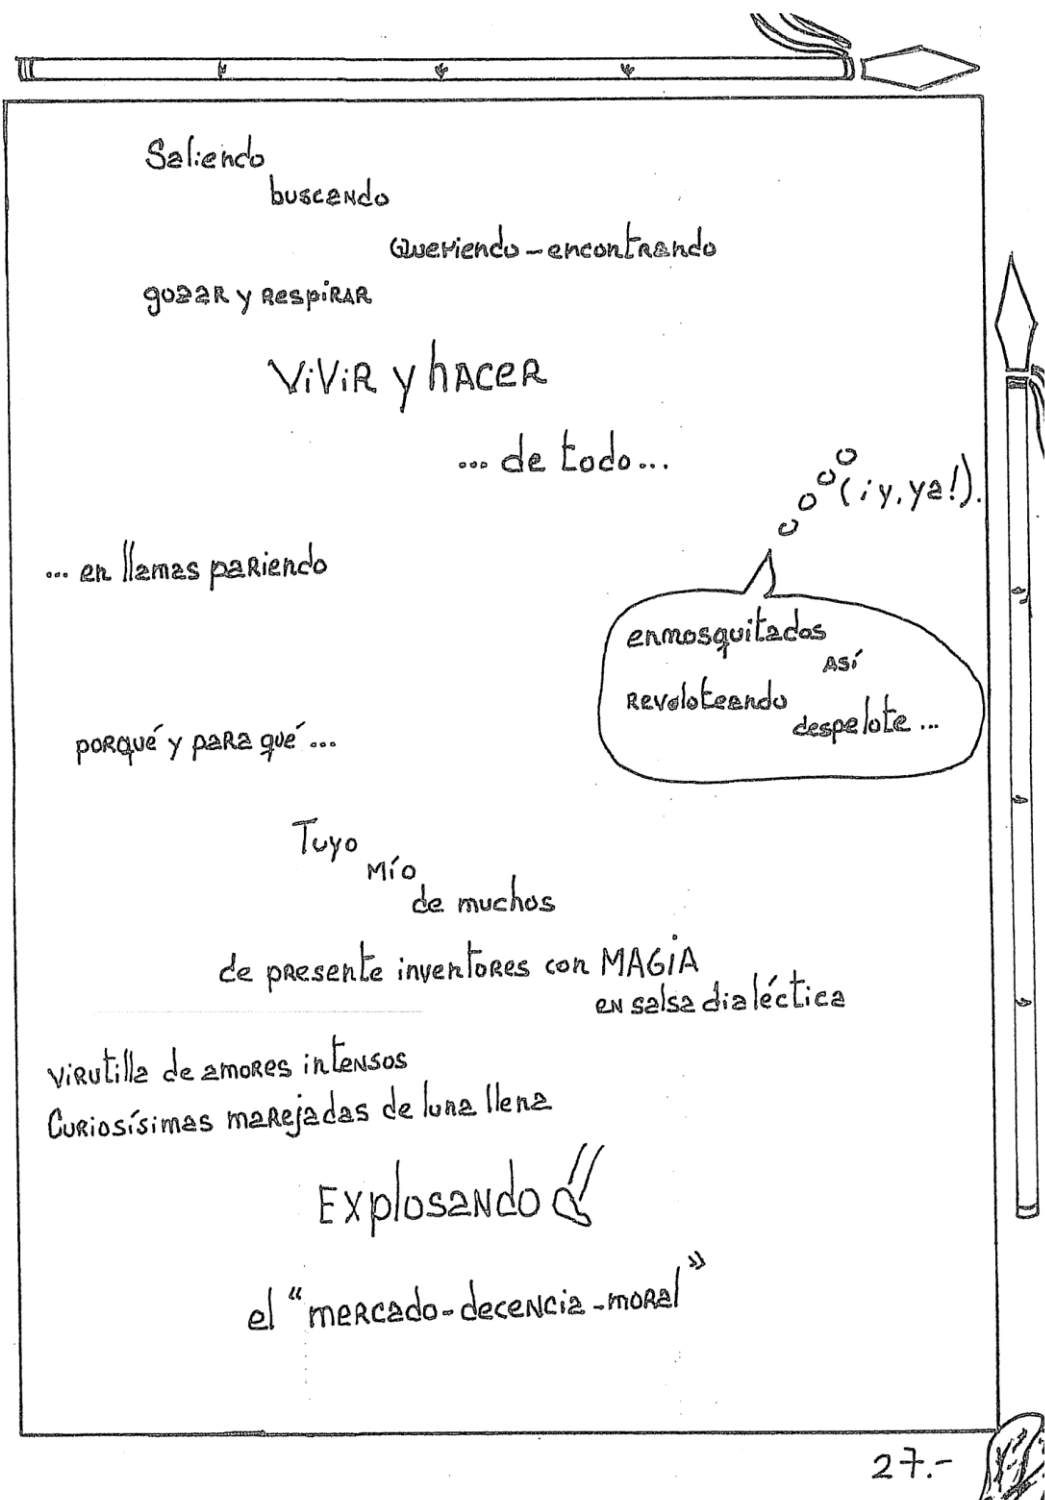 Saliendo
buscando
Queriendo-encontrando
gozar y respirar
ViViR y hacer
... de todo...
(¡y, ya!).
... en llamas pariendo
enmosquitados
así
revoloteando
despelote ...
porqué y para qué ...
Tuyo
Mío
de muchos
de presente inventores con MAGiA
en salsa dialéctica
virutilla de amores intensos
Curiosísimas marejadas de luna llena
Explosando
el "mercado-decencia-moral"
27.-